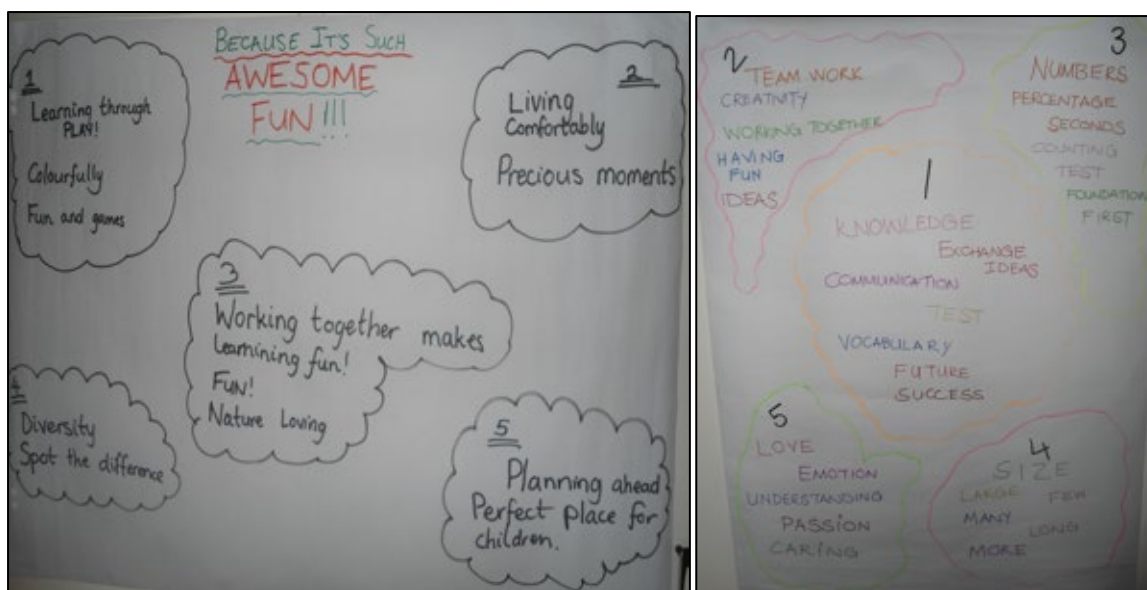 BECAUSE IT'S SUCH
AWESOME
FUN!!!
1
Learning through
PLAY!
Colourfully
Fun and games
2
Living
Comfortably
Precious moments
3
Working together makes
Learnining fun!
FUN!
Nature Loving
4
Diversity
Spot the difference
5
Planning ahead
Perfect place for
children.
2
TEAM WORK
CREATIVITY
WORKING TOGETHER
HAVING
FUN
IDEAS
3
NUMBERS
PERCENTAGE
SECONDS
COUNTING
TEST
FOUNDATION
FIRST
1
KNOWLEDGE
EXCHANGE
IDEAS
COMMUNICATION
TEST
VOCABULARY
FUTURE
SUCCESS
5
LOVE
EMOTION
UNDERSTANDING
PASSION
CARING
4
SIZE
LARGE FEW
MANY
LONG
MORE